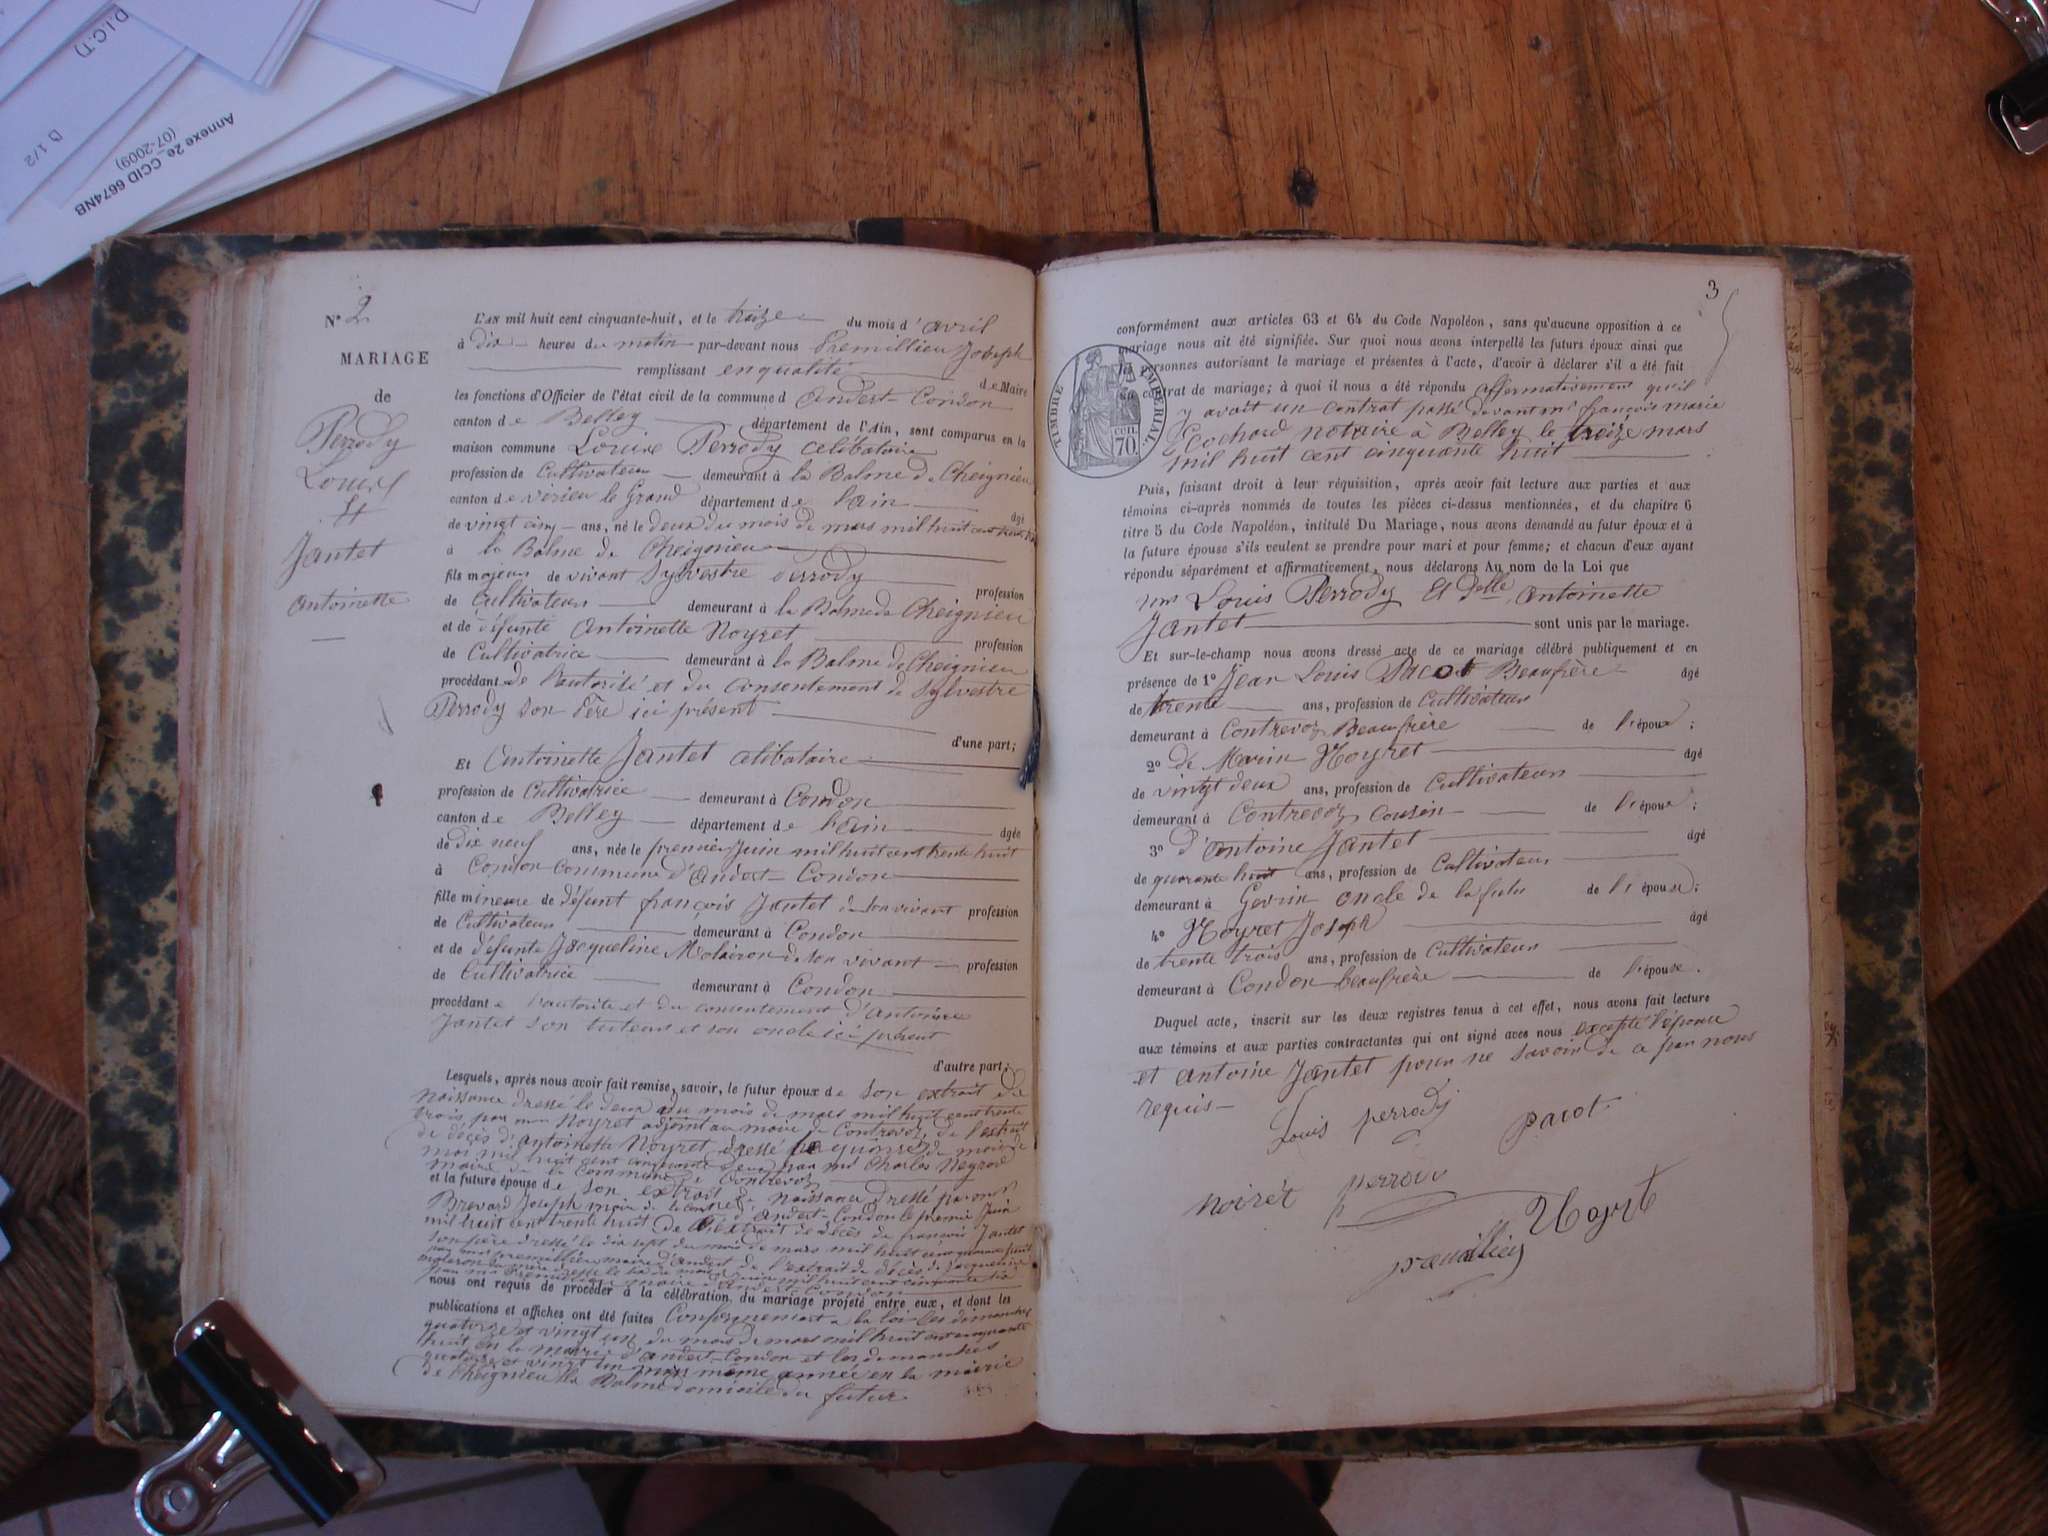 D.I.C.T)
D 1/2
Annexe 2e_CCID 6674NB
(07-2009)
N° 2
MARIAGE
de
Perrody
Louis
Et
Jantet
antoinette
L'AN mil huit cent cinquante-huit, et le treize du mois d'avril
à dix heures du matin par-devant nous Premillieu Joseph
remplissant en qualité de Maire
les fonctions d'Officier de l'état civil de la commune d andert-Condon
canton de Belley département de l'Ain, sont comparus en la
maison commune Louis Perrody celibataire
profession de Cultivateur demeurant à la Balme de Cheignieu
canton de virieu le Grand département de l'ain âgé
de vingt cinq ans, né le deux du mois de mars mil huit cent trente
à la Balme de Cheignieu
fils majeur de vivant Sylvestre Perrody profession
de Cultivateur demeurant à la Balme de Cheignieu
et de défunte Antoinette Noyret profession
de Cultivatrice demeurant à la Balme de Cheignieu
procédant de l'autorité et du consentement de Sylvestre
Perrody son Père ici présent
d'une part;
Et Antoinette Jantet celibataire
profession de Cultivatrice demeurant à Condon
canton de Belley département de l'ain âgée
de dix neuf ans, née le premier Juin mil huit cent trente huit
à Condon Commune d'Andert-Condon
fille mineure de défunt françois Jantet de son vivant profession
de Cultivateur demeurant à Condon
et de défunte Jacqueline Molairon de son vivant profession
de Cultivatrice demeurant à Condon
procédant e l'autorite et du consentement d'Antoine
Jantet son tuteur et son oncle ici présent
d'autre part;
Lesquels, après nous avoir fait remise, savoir, le futur époux de son extrait de
naissance dressé le deux du mois de mars mil huit cent trente
trois par Noyret adjoint au maire de Contrevoz, de l'extrait
de décès d'antoinette Noyret dressé le quinze du mois de
mai mil huit cent cinquante deux par Charles
maire de la Commune de Contrevoz
et la future épouse de son extrait de naissance dressé par
Brevard Joseph maire de andert-Condon le premier Juin
mil huit cent trente huit De l'extrait de décès de françois Jantet
son père dressé le dix sept du mois de mars mil huit cent quarante huit
par premillieu maire d'andert de l'extrait de décès de Jacqueline
nous ont requis de procéder à la célébration du mariage projeté entre eux, et dont les
publications et affiches ont été faites Conformement a la loi les dimanches
quatorze et vingt un du mois de mars mil huit cent cinquante
huit en la mairie d'andert-Condon et les dimanches
quatorze et vingt un même année en la mairie
de Cheignieu la Balme domicile du futur
3
conformément aux articles 63 et 64 du Code Napoléon, sans qu'aucune opposition à ce
mariage nous ait été signifiée. Sur quoi nous avons interpellé les futurs époux ainsi que
les personnes autorisant le mariage et présentes à l'acte, d'avoir à déclarer s'il a été fait
un contrat de mariage; à quoi il nous a été répondu affirmativement qu'il
y avait un contrat passé devant françois marie
Cochard notaire à Belley le treize mars
mil huit cent cinquante huit
TIMBRE IMPÉRIAL
70 cen.
Puis, faisant droit à leur réquisition, après avoir fait lecture aux parties et aux
témoins ci-après nommés de toutes les pièces ci-dessus mentionnées, et du chapitre 6
titre 5 du Code Napoléon, intitulé Du Mariage, nous avons demandé au futur époux et à
la future épouse s'ils veulent se prendre pour mari et pour femme; et chacun d'eux ayant
répondu séparément et affirmativement, nous déclarons Au nom de la Loi que
Louis Perrody Et Delle Antoinette
Jantet sont unis par le mariage.
Et sur-le-champ nous avons dressé acte de ce mariage célébré publiquement et en
présence de 1° Jean Louis Pacot Beaufrère âgé
de trente ans, profession de Cultivateur
demeurant à Contrevoz Beaufrère de l'époux;
2° de Marin Noyret âgé
de vingt deux ans, profession de Cultivateur
demeurant à Contrevoz Cousin de l'époux;
3° d'antoine Jantet âgé
de quarante huit ans, profession de Cultivateur
demeurant à Gevrin oncle de la futu de l'épouse;
4° Noyret Joseph âgé
de trente trois ans, profession de Cultivateur
demeurant à Condon beaufrère de l'épouse.
Duquel acte, inscrit sur les deux registres tenus à cet effet, nous avons fait lecture
aux témoins et aux parties contractantes qui ont signé avec nous excepté l'épouse
et antoine Jantet pour ne savoir de ce par nous
requis
Louis perrody
pacot
noirét
perrodi
Noyret
premillieu